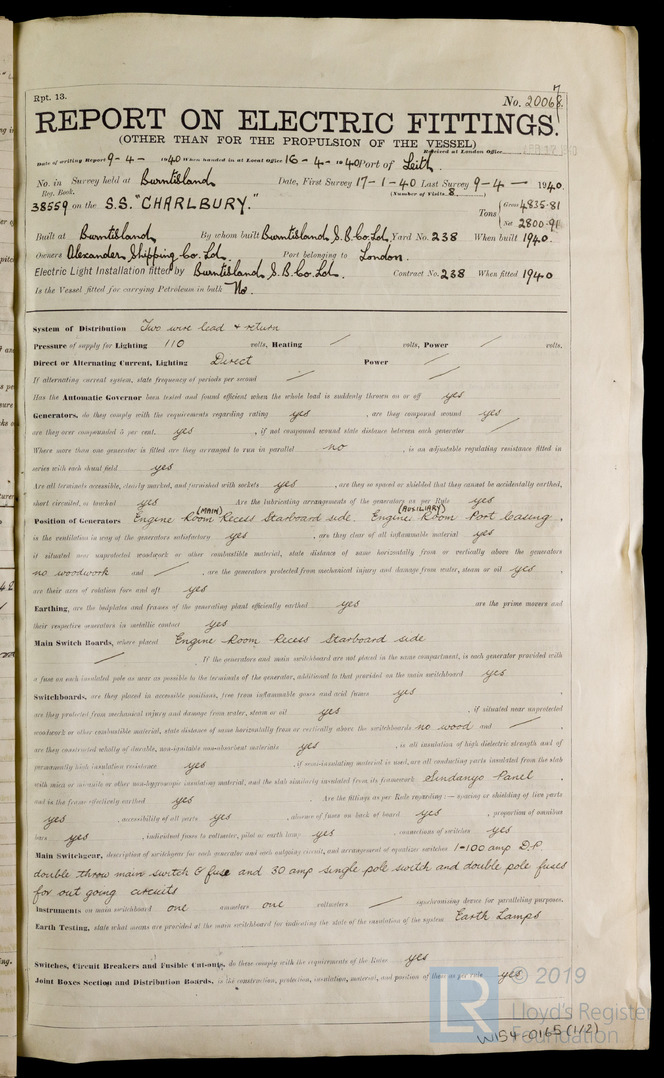 Rpt. 13.
No. 20068.
REPORT ON ELECTRIC FITTINGS.
(OTHER THAN FOR THE PROPULSION OF THE VESSEL)
Received at London Office
Date of writing Report 9-4-1940 When handed in at Local Office 16-4-1940 Port of Leith.
No. in Survey held at Burntisland Date, First Survey 17-1-40 Last Survey 9-4-1940.
Reg. Book. (Number of Visits 8)
38559 on the S.S. "CHARLBURY." Tons { Gross 4835.81
Net 2800.91
Built at Burntisland By whom built Burntisland S.B. Co. Ltd. Yard No. 238 When built 1940.
Owners Alexander Shipping Co. Ltd. Port belonging to London.
Electric Light Installation fitted by Burntisland S.B. Co. Ltd. Contract No. 238 When fitted 1940
Is the Vessel fitted for carrying Petroleum in bulk No.
System of Distribution Two wire lead & return
Pressure of supply for Lighting 110 volts, Heating / volts, Power / volts,
Direct or Alternating Current, Lighting Direct Power /
If alternating current system, state frequency of periods per second /
Has the Automatic Governor been tested and found efficient when the whole load is suddenly thrown on or off yes
Generators, do they comply with the requirements regarding rating yes , are they compound wound yes
are they over compounded 5 per cent. yes , if not compound wound state distance between each generator /
Where more than one generator is fitted are they arranged to run in parallel no , is an adjustable regulating resistance fitted in
series with each shunt field yes
Are all terminals accessible, clearly marked, and furnished with sockets yes , are they so spaced or shielded that they cannot be accidentally earthed,
short circuited, or touched yes Are the lubricating arrangements of the generators as per Rule yes
Position of Generators Engine Room Recess Starboard side. (MAIN) Engine Room Port casing (AUXILIARY) ,
is the ventilation in way of the generators satisfactory yes , are they clear of all inflammable material yes
if situated near unprotected woodwork or other combustible material, state distance of same horizontally from or vertically above the generators
no woodwork and / , are the generators protected from mechanical injury and damage from water, steam or oil yes ,
are their axes of rotation fore and aft yes
Earthing, are the bedplates and frames of the generating plant efficiently earthed yes are the prime movers and
their respective generators in metallic contact yes
Main Switch Boards, where placed Engine Room Recess Starboard side
/ . If the generators and main switchboard are not placed in the same compartment, is each generator provided with
a fuse on each insulated pole as near as possible to the terminals of the generator, additional to that provided on the main switchboard yes
Switchboards, are they placed in accessible positions, free from inflammable gases and acid fumes yes ,
are they protected from mechanical injury and damage from water, steam or oil yes , if situated near unprotected
woodwork or other combustible material, state distance of same horizontally from or vertically above the switchboards no wood and / ,
are they constructed wholly of durable, non-ignitable non-absorbent materials yes , is all insulation of high dielectric strength and of
permanently high insulation resistance yes , if non-insulating material is used, are all conducting parts insulated from the slab
with mica or micanite or other non-hygroscopic insulating material, and the slab similarly insulated from its framework Sindanyo Panel ,
and is the frame effectively earthed yes . Are the fittings as per Rule regarding:— spacing or shielding of live parts
yes , accessibility of all parts yes , absence of fuses on back of board yes , proportion of omnibus
bars yes , individual fuses to voltmeter, pilot or earth lamp yes , connections of switches yes
Main Switchgear, description of switchgear for each generator and each outgoing circuit, and arrangement of equalizer switches 1-100 amp D.P.
double throw main switch & fuse and 30 amp single pole switch and double pole fuses
for out going circuits
Instruments on main switchboard one ammeters one voltmeters / synchronising device for paralleling purposes.
Earth Testing, state what means are provided at the main switchboard for indicating the state of the insulation of the system Earth Lamps
Switches, Circuit Breakers and Fusible Cut-outs, do these comply with the requirements of the Rules yes
Joint Boxes Section and Distribution Boards, is the construction, protection, insulation, material, and position of these as per rule yes
© 2019
LR Lloyd's Register
Foundation
W154-0165 (1/2)